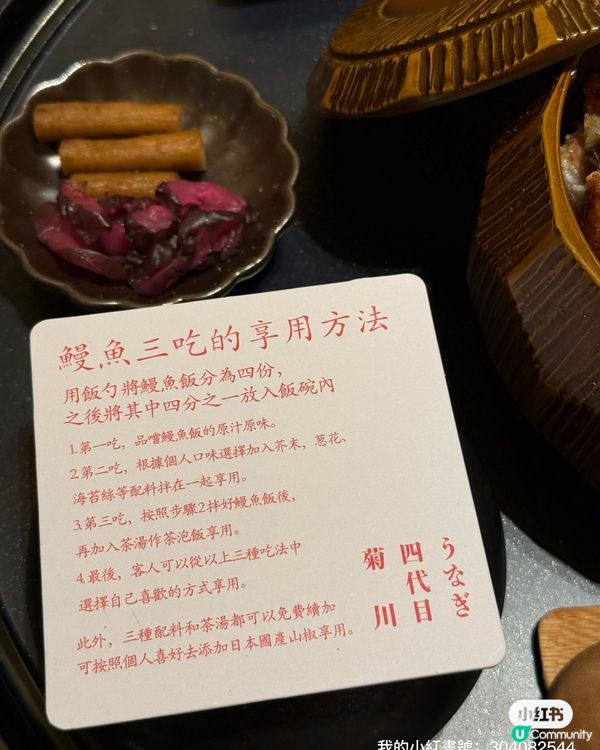 鰻魚三吃的享用方法
用飯勺將鰻魚飯分為四份，
之後將其中四分之一放入飯碗內
1.第一吃，品嚐鰻魚飯的原汁原味。
2.第二吃，根據個人口味選擇加入芥末，葱花、
海苔絲等配料拌在一起享用。
3.第三吃，按照步驟2拌好鰻魚飯後，
再加入茶湯作茶泡飯享用。
4.最後，客人可以從以上三種吃法中
選擇自己喜歡的方式享用。
此外，三種配料和茶湯都可以免費續加
可按照個人喜好去添加日本國產山椒享用。
うなぎ
四代目
菊川
小红书
U Community
我的小紅書號：304082544